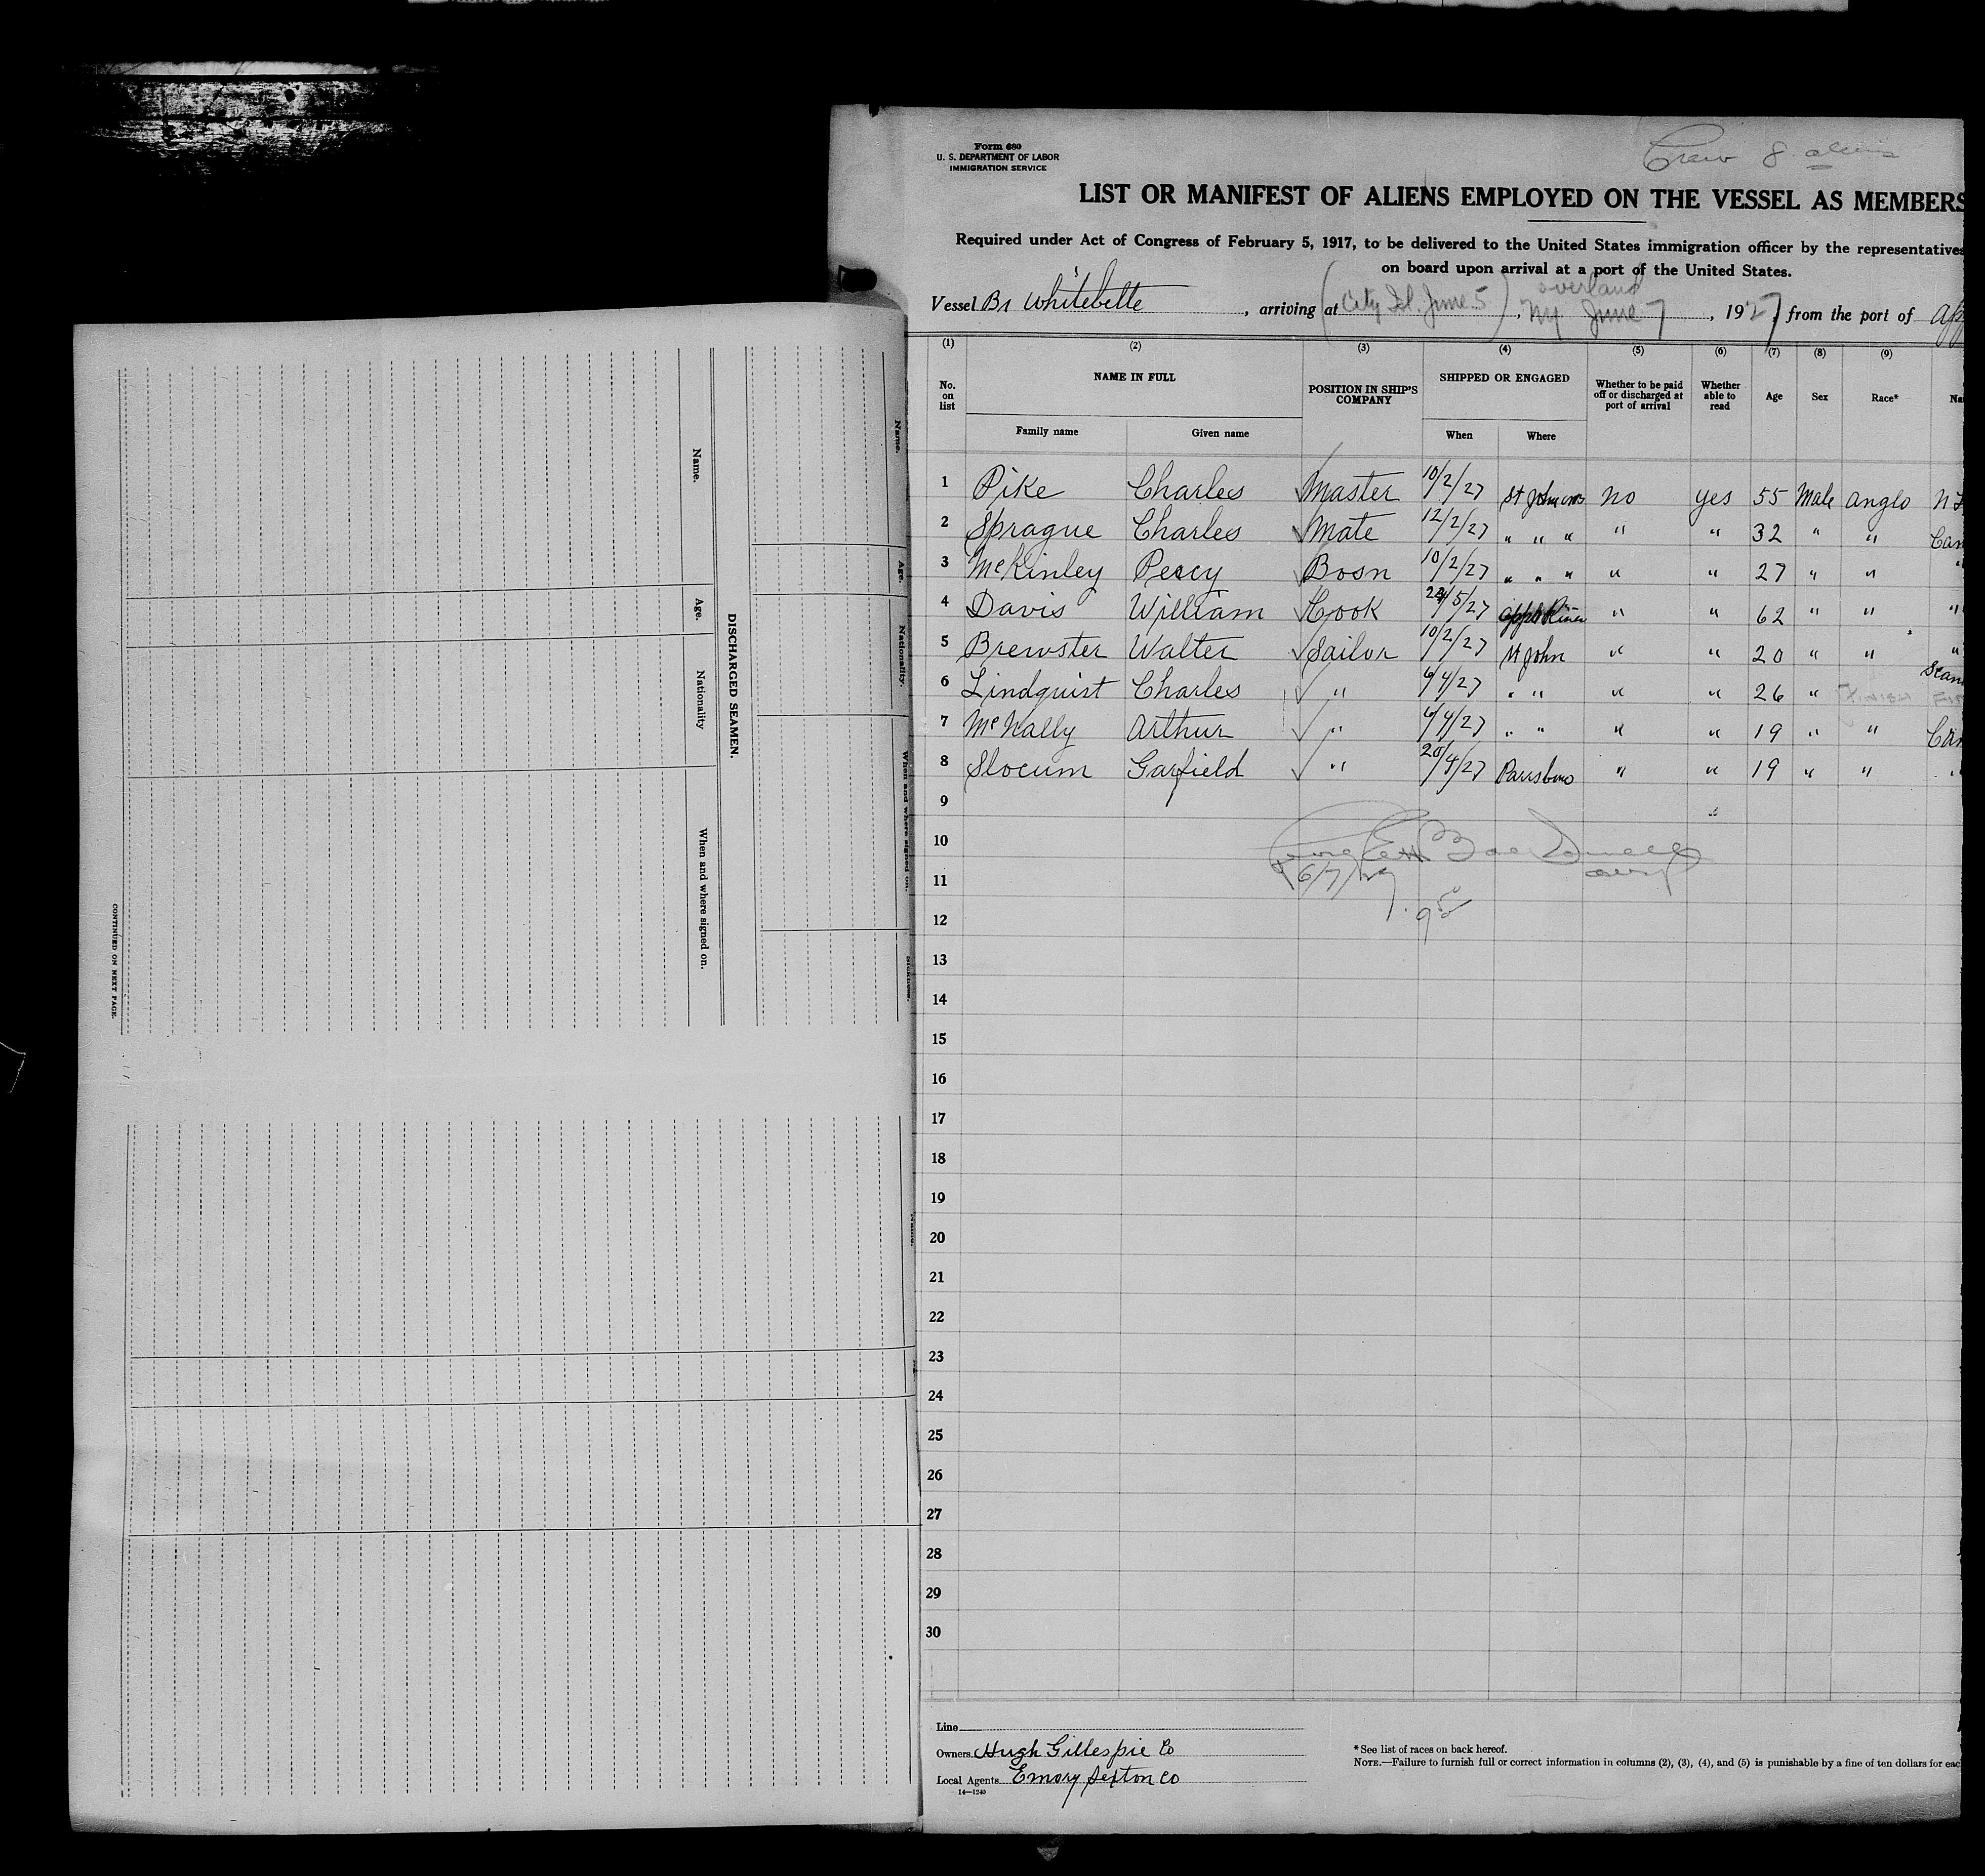 Name.
Age.
Nationality.
When and where signed on.
DISCHARGED SEAMEN.
Name.
Age.
Nationality
When and where signed on.
CONTINUED ON NEXT PAGE.
Form 680
U. S. DEPARTMENT OF LABOR
IMMIGRATION SERVICE
Crew 8 aliens
LIST OR MANIFEST OF ALIENS EMPLOYED ON THE VESSEL AS MEMBERS
Required under Act of Congress of February 5, 1917, to be delivered to the United States immigration officer by the representatives
on board upon arrival at a port of the United States.
overland
Vessel Br Whitebelle, arriving at (City Isl. June 5), NY June 7, 1927, from the port of
(1) (2) (3) (4) (5) (6) (7) (8) (9)
No. on list NAME IN FULL POSITION IN SHIP'S COMPANY SHIPPED OR ENGAGED Whether to be paid off or discharged at port of arrival Whether able to read Age Sex Race*
Family name Given name When Where
1 Pike Charles Master 10/2/27 St John no yes 55 Male anglo
2 Sprague Charles Mate 12/2/27 " " " " " 32 " " Can
3 McKinley Percy Bosn 10/2/27 " " " " " 27 " " "
4 Davis William Cook /5/27 " " 62 " " "
5 Brewster Walter Sailor 10/2/27 St John " " 20 " " "
6 Lindquist Charles " 6/4/27 " " " " 26 " Scan
7 McNally Arthur " 6/4/27 " " " " 19 " " Can
8 Slocum Garfield " 20/4/27 Parrsboro " " 19 " " "
9
10
11 6/7/27
12
13
14
15
16
17
18
19
20
21
22
23
24
25
26
27
28
29
30
Line
Owners Hugh Gillespie Co
Local Agents Emory Sexton Co
14—1240
* See list of races on back hereof.
NOTE.—Failure to furnish full or correct information in columns (2), (3), (4), and (5) is punishable by a fine of ten dollars for eac